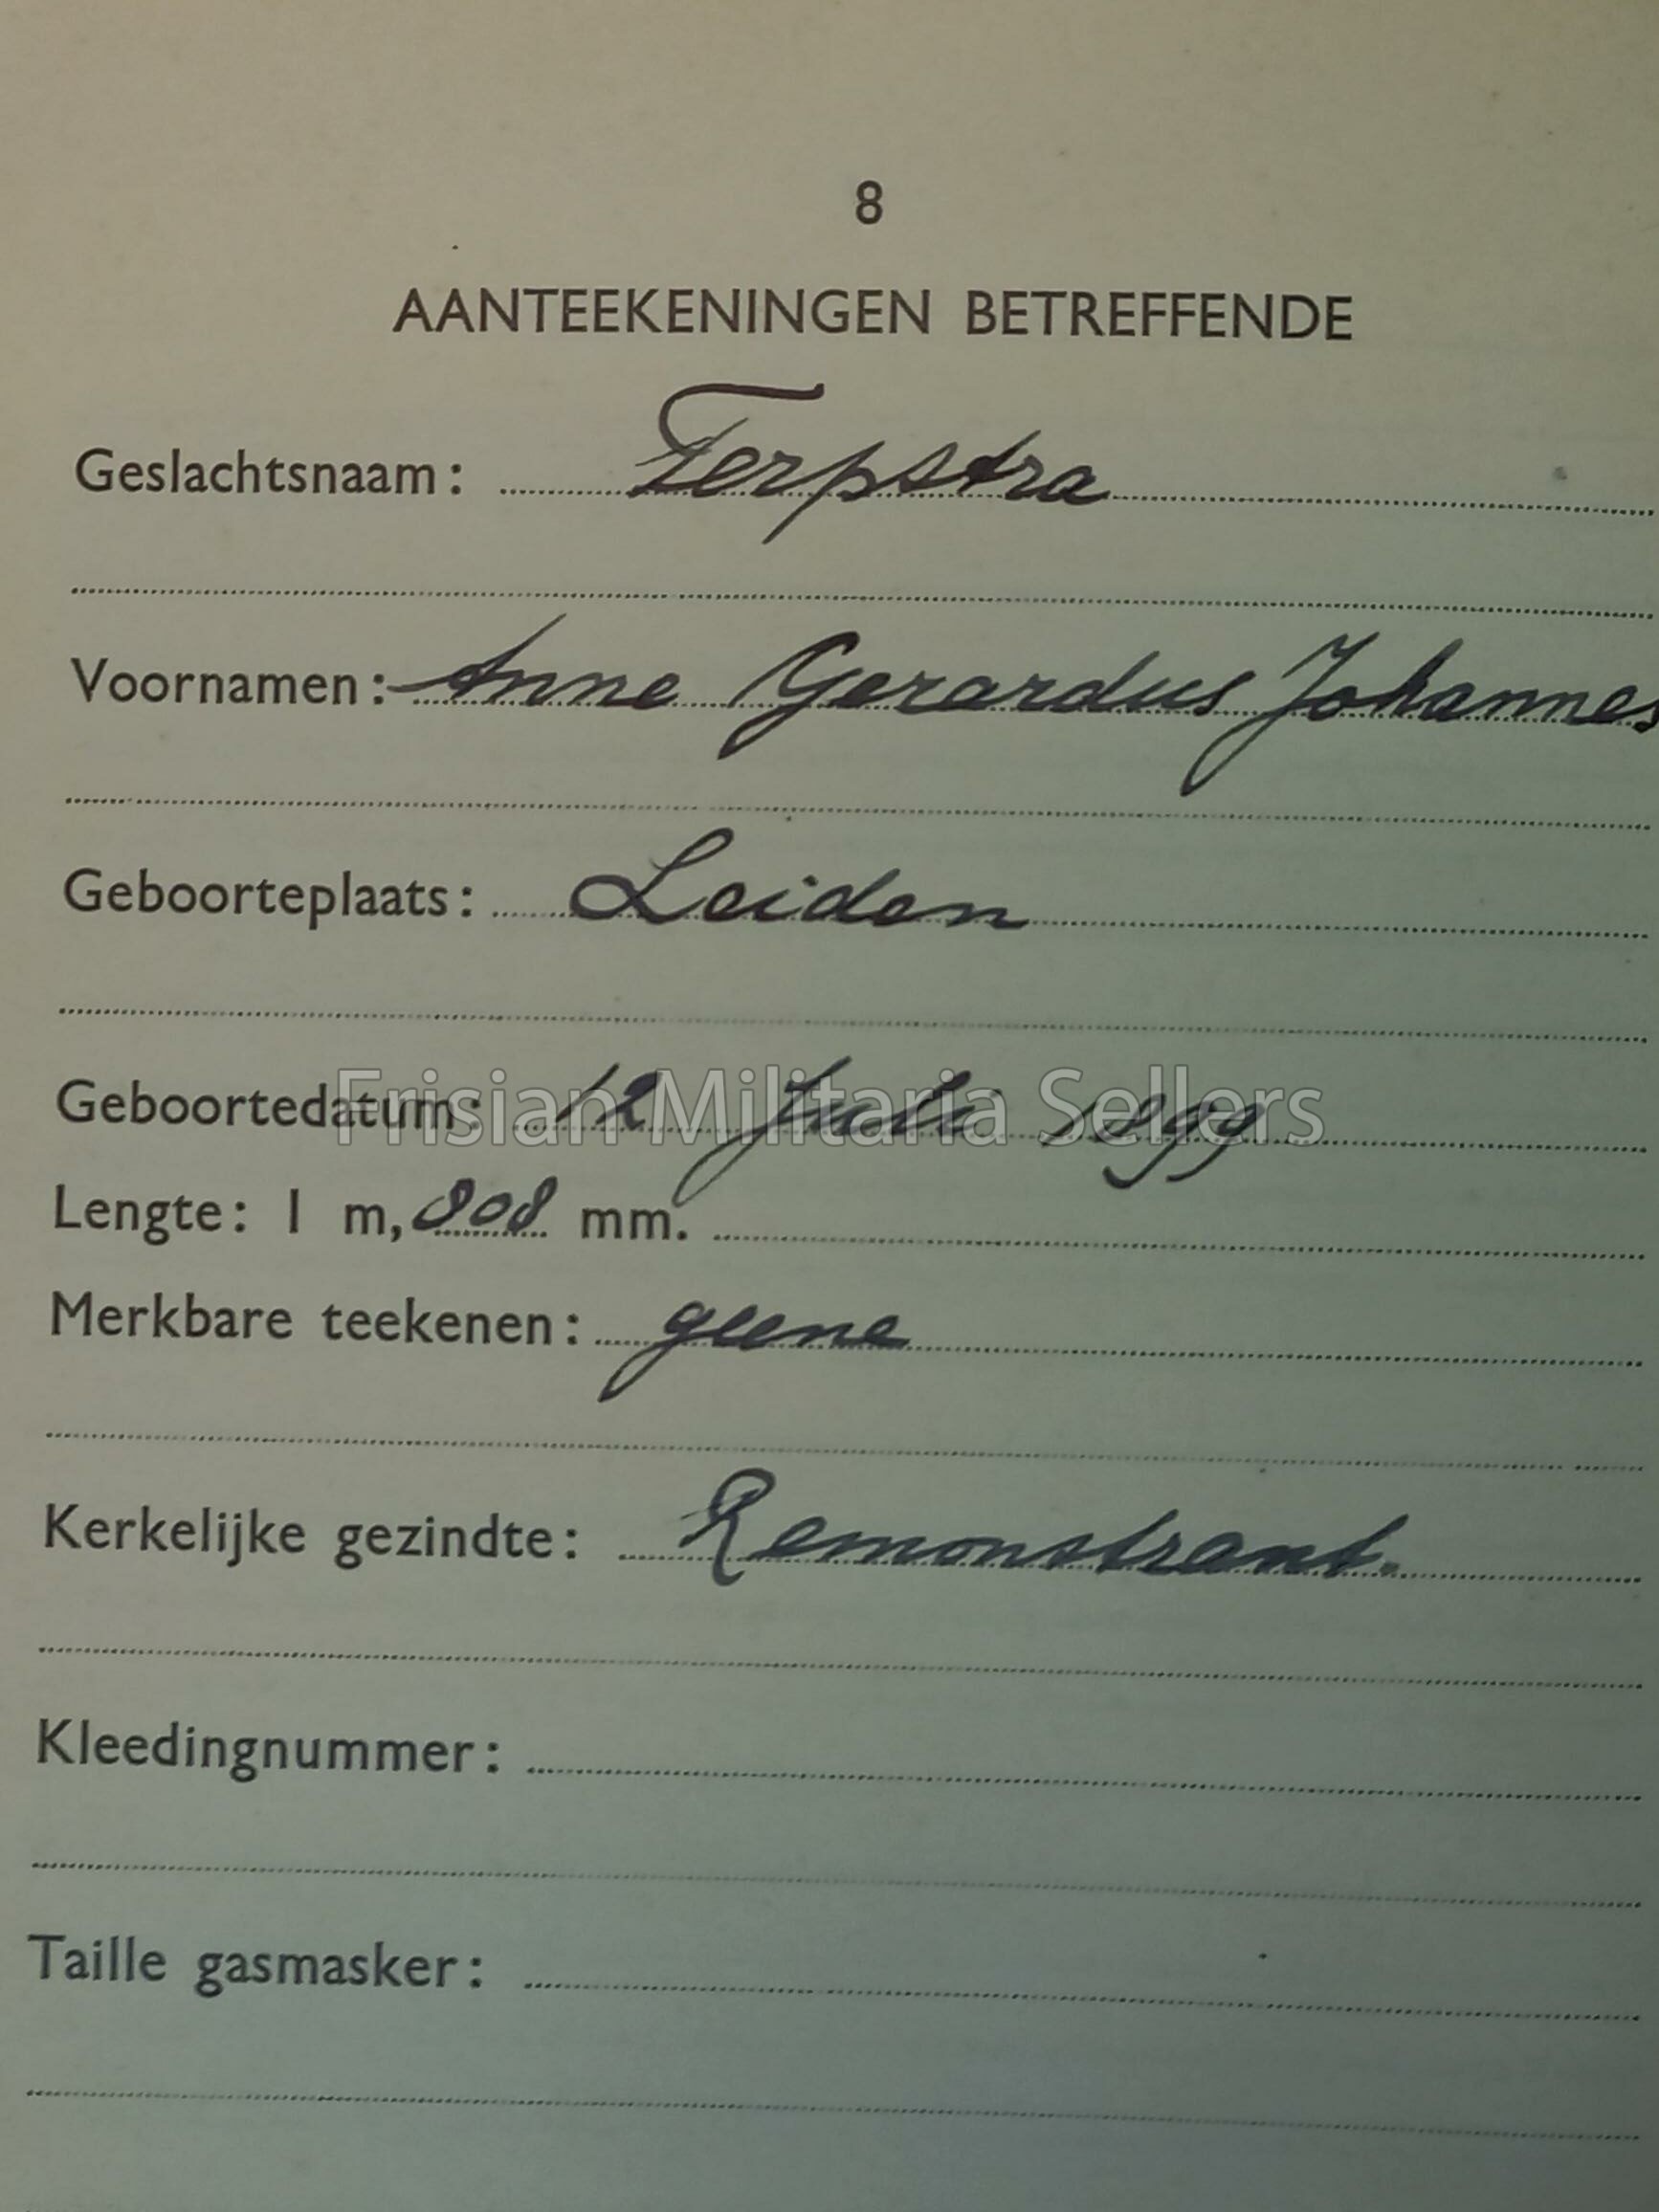 8
AANTEEKENINGEN BETREFFENDE
Geslachtsnaam: Terpstra
Voornamen: Anne Gerardus Johannes
Geboorteplaats: Leiden
Geboortedatum: 12 Juli 1899
Frisian Militaria Sellers
Lengte: 1 m, 808 mm.
Merkbare teekenen: geene
Kerkelijke gezindte: Remonstrant.
Kleedingnummer:
Taille gasmasker: